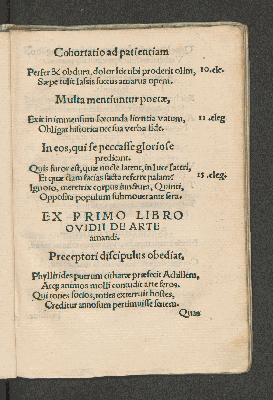 Cohortatio ad patientiam
Perfer & obdura, dolor hic tibi proderit olim, 10.ele.
Sæpe tulit lassis succus amarus opem.
Multa mentiuntur poetæ,
Exit in immensum fœcunda licentia vatum, 11.eleg
Obligat historica nec sua verba fide.
In eos, qui se peccasse gloriose
predicant.
Quis furor est, quæ nocte latent, in luce fateri,
Et quæ clam facias facta referre palam? 13.eleg.
Ignoto, meretrix corpus iunctura, Quiriti,
Opposita populum submouet ante sera.
EX PRIMO LIBRO
OVIDII DE ARTE
amandi.
Preceptori discipulus obediat,
Phyllirides puerum citharæ præfecit Achillem,
Atq; animos molli contudit arte feros.
Qui toties socios, toties exterruit hostes,
Creditur annosum pertimuisse senem.
Quas